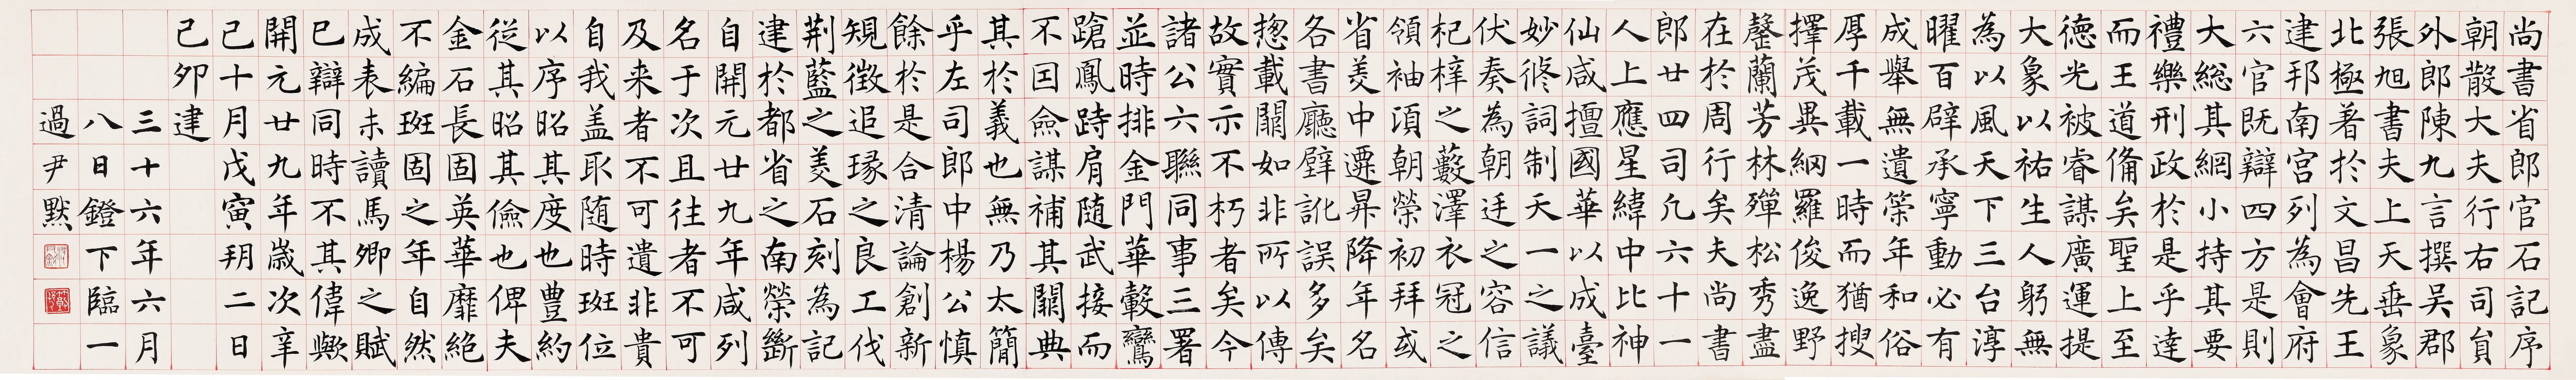 尚書省郎官石記序
朝散大夫行右司貟
外郎陳九言撰吳郡
張旭書夫上天垂象
北極著於文昌先王
建邦南宮列為會府
六官既辯四方是則
大総其綱小持其要
禮樂刑政於是乎逹
而王道俻矣聖上至
德光被睿謀廣運提
大象以祐生人躬無
為以風天下三台淳
曜百辟承寧動必有
成舉無遺筞年和俗
厚千載一時而猶搜
擇茂異網羅俊逸野
馨蘭芳林殫松秀盡
在於周行矣夫尚書
郎廿四司凢六十一
人上應星緯中比神
仙咸擅國華以成臺
妙修詞制天一之議
伏奏為朝廷之容信
杞梓之藪澤衣冠之
領袖項朝榮初拜或
省美中遷昇降年名
各書廳壁訛誤多矣
揔載闕如非所以傳
故實示不朽者矣今
諸公六聯同事三署
並時排金門華轂鸞
蹌鳳跱肩隨武接而
不囙僉謀補其闕典
其於義也無乃太簡
乎左司郎中楊公慎
餘於是合清論創新
規徵追琢之良工伐
荆藍之美石刻為記
建於都省之南榮斷
自開元廿九年咸列
名于次且往者不可
及来者不可遺非貴
自我盖取随時斑位
以序昭其度也豊約
從其昭其儉也俾夫
金石長固英華靡絕
不編斑固之年自然
成表未讀馬卿之賦
巳辯同時不其偉歟
開元廿九年歲次辛
己十月戊寅玥二日
己卯建
三十六年六月
八日鐙下臨一
過尹默